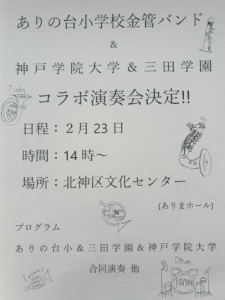 ありの台小学校金管バンド
&
神戸学院大学&三田学園
コラボ演奏会決定!!
日程：２月23日
時間：14時～
場所：北神区文化センター
(ありまホール)
プログラム
ありの台小&三田学園&神戸学院大学
合同演奏 他
Tuba
Drum